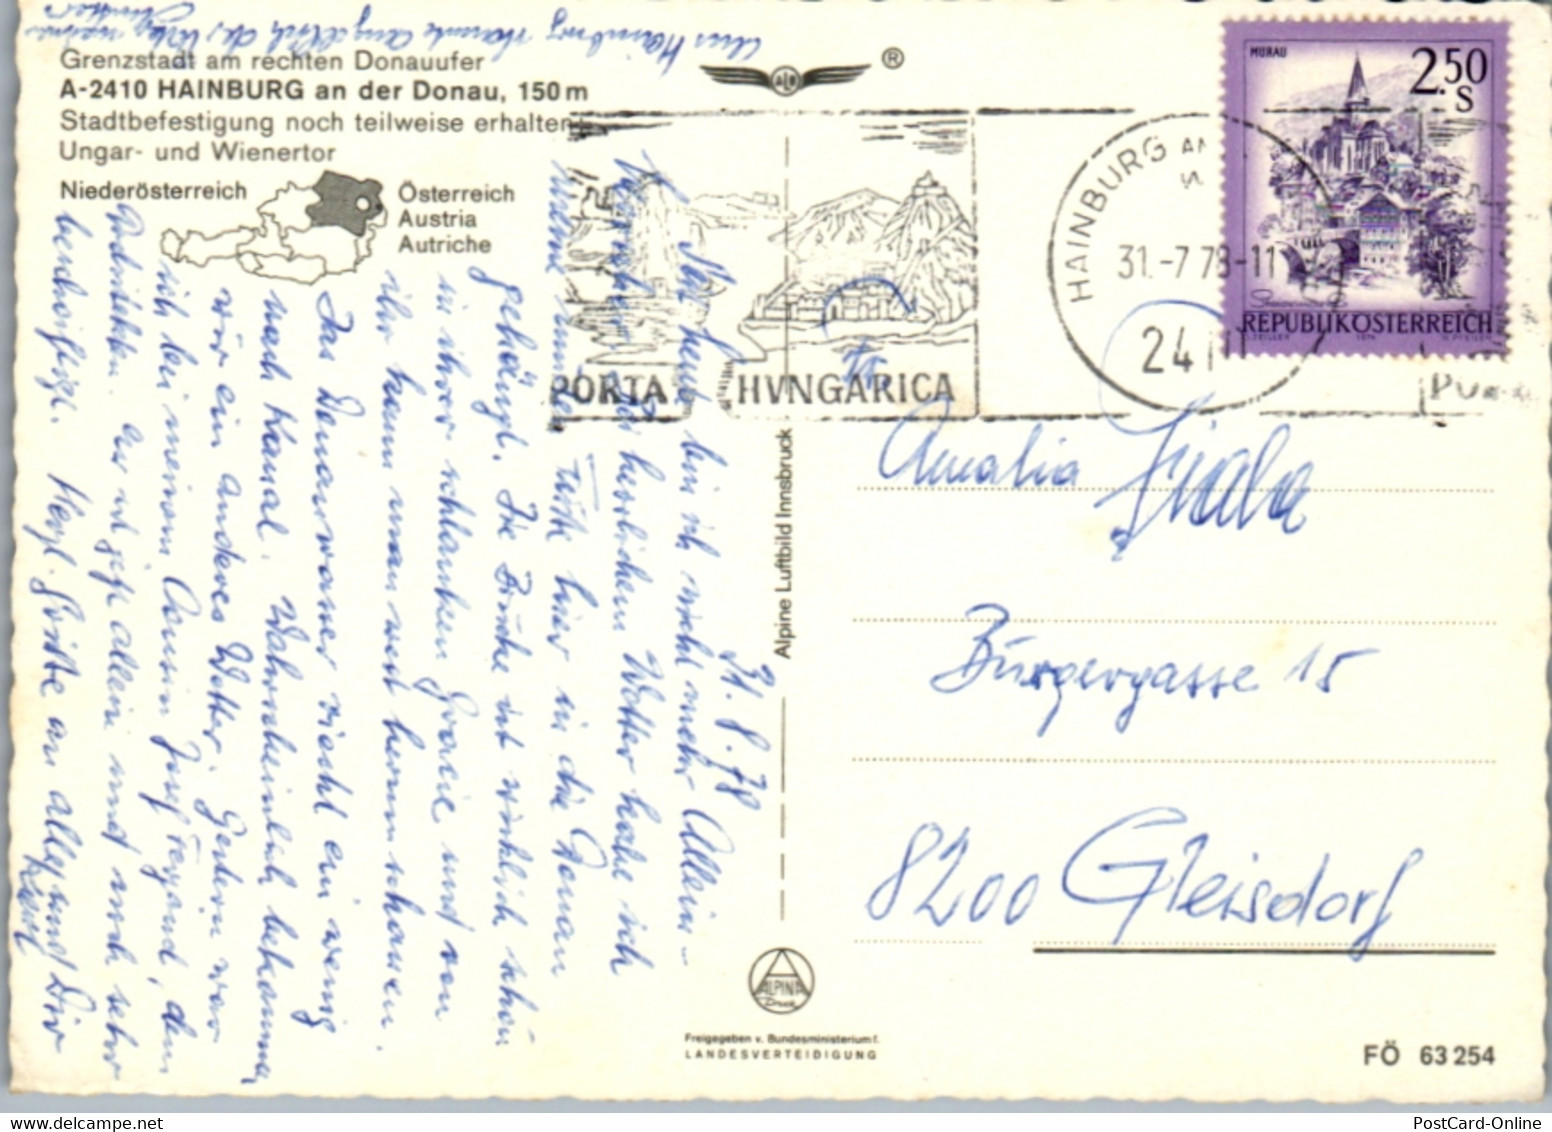 Grenzstadt am rechten Donauufer
A-2410 HAINBURG an der Donau, 150 m
Stadtbefestigung noch teilweise erhalten
Ungar- und Wienertor
Niederösterreich
Österreich
Austria
Autriche
ALR
®
PORTA HVNGARICA
HAINBURG AN
31.-7.78-11
241
MURAU
2.50
S
REPUBLIK ÖSTERREICH
Amalia
Bürgergasse 15
8200 Gleisdorf
Alpine Luftbild Innsbruck
ALPINA
Druck
Freigegeben v. Bundesministerium f.
LANDESVERTEIDIGUNG
FÖ 63 254
31. 8. 78
Nun heute bin ich nicht mehr Allein-
herrlichem Wetter habe ich
meine müden Füße hier in die Donau
gehängt. Die Brücke ist wirklich schön
in ihrer schlanken Grazie und von
ihr kann man weit herumschauen.
Das Donauwasser riecht ein wenig
nach Kanal. Wahrscheinlich bekommen
wir ein anderes Wetter. Gestern war
ich bei meinem Cousin Josef, dem
Er ist jetzt allein und noch sehr
Herzl. Grüße an alle und Dir